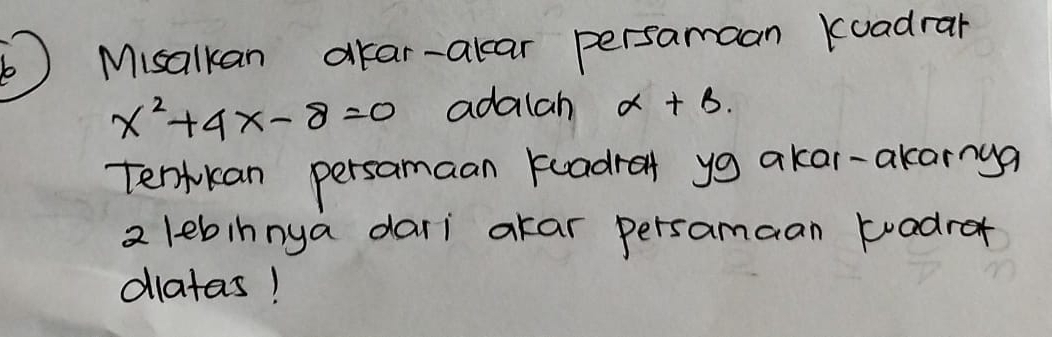 6) Misalkan akar-akar persamaan kuadrat
x²+4x-8=0 adalah α + β.
Tentukan persamaan kuadrat yg akar-akarnya
2 lebihnya dari akar persamaan kuadrat
diatas!